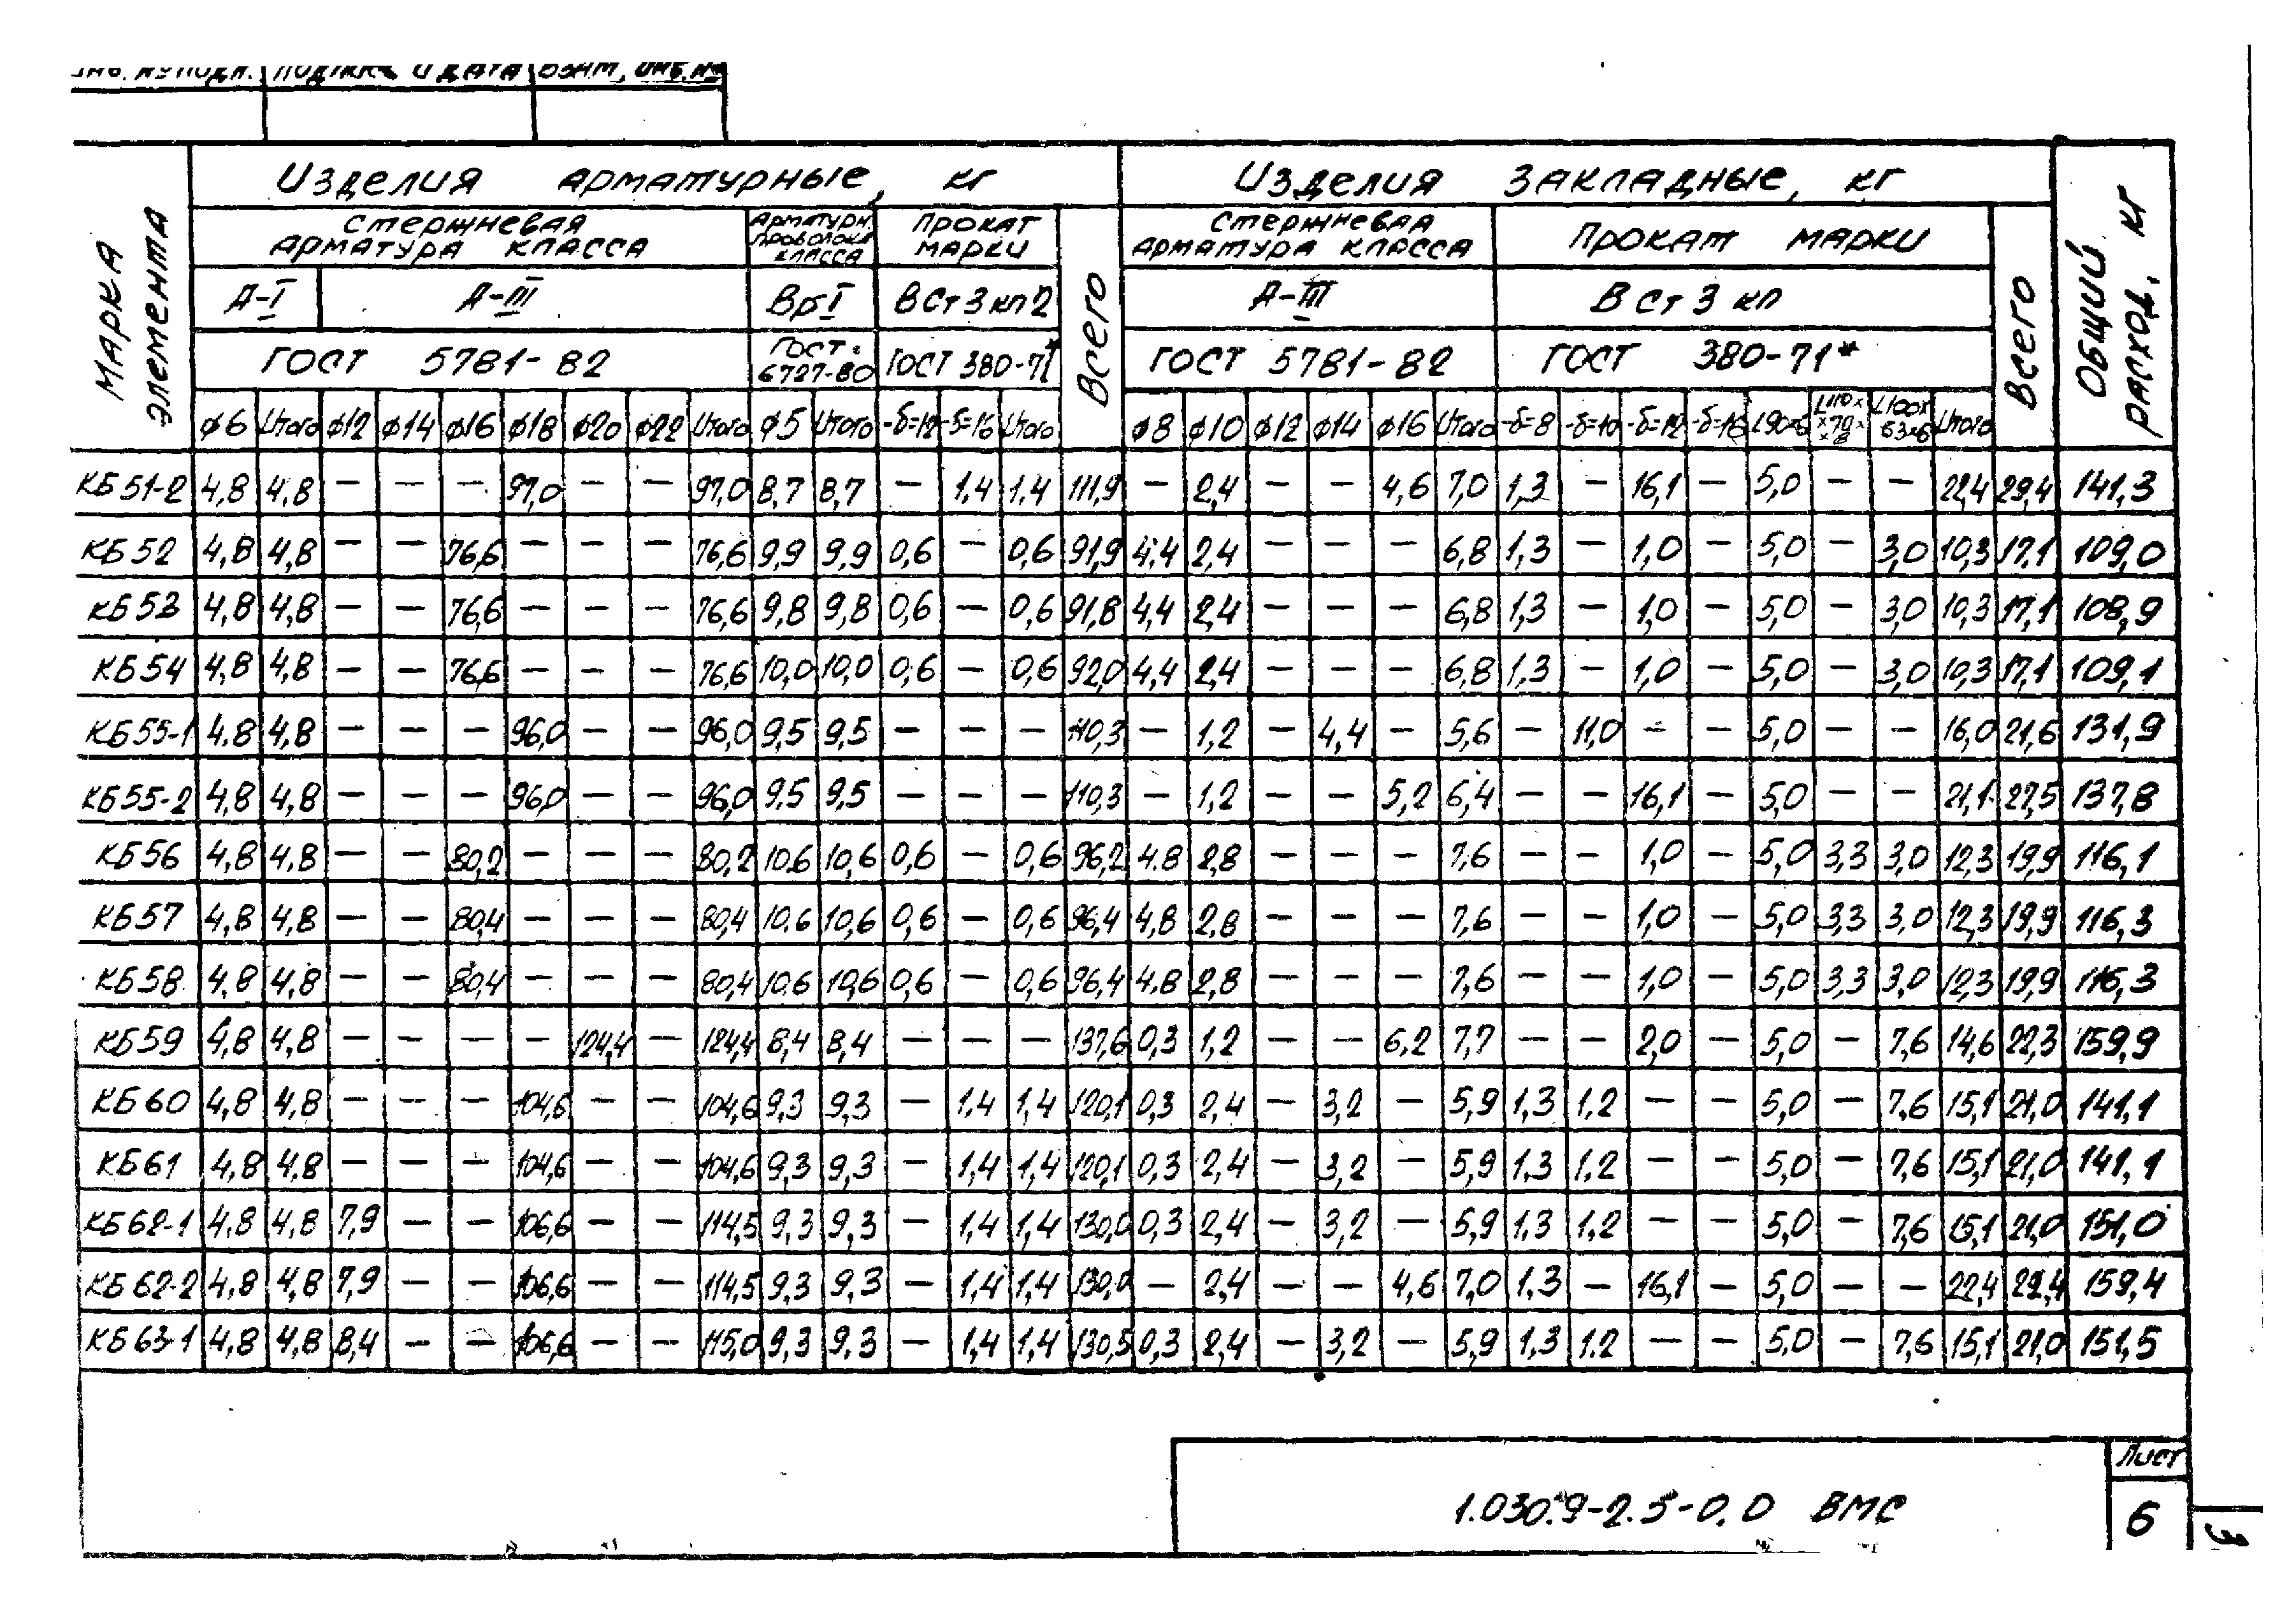 ПОДПИСЬ И ДАТА ВЗАМ. ИНВ. №
МАРКА ЭЛЕМЕНТА
Изделия арматурные, кг
Изделия закладные, кг
Общий расход, кг
Стержневая арматура класса
Арматурн. проволока класса
Прокат марки
Всего
Стержневая арматура класса
Прокат марки
Всего
А-I А-III Вр-I ВСт3кп2 А-III ВСт3кп
ГОСТ 5781-82 ГОСТ 6727-80 ГОСТ 380-71* ГОСТ 5781-82 ГОСТ 380-71*
φ6 Итого φ12 φ14 φ16 φ18 φ20 φ22 Итого φ5 Итого -δ=12 -δ=16 Итого φ8 φ10 φ12 φ14 φ16 Итого -δ=8 -δ=10 -δ=12 -δ=16 L90×6 L110××70××8 L100×63×6 Итого
КБ51-2 4,8 4,8 — — — 97,0 — — 97,0 8,7 8,7 — 1,4 1,4 111,9 — 2,4 — — 4,6 7,0 1,3 — 16,1 — 5,0 — — 22,4 29,4 141,3
КБ52 4,8 4,8 — — 76,6 — — — 76,6 9,9 9,9 0,6 — 0,6 91,9 4,4 2,4 — — — 6,8 1,3 — 1,0 — 5,0 — 3,0 10,3 17,1 109,0
КБ53 4,8 4,8 — — 76,6 — — — 76,6 9,8 9,8 0,6 — 0,6 91,8 4,4 2,4 — — — 6,8 1,3 — 1,0 — 5,0 — 3,0 10,3 17,1 108,9
КБ54 4,8 4,8 — — 76,6 — — — 76,6 10,0 10,0 0,6 — 0,6 92,0 4,4 2,4 — — — 6,8 1,3 — 1,0 — 5,0 — 3,0 10,3 17,1 109,1
КБ55-1 4,8 4,8 — — — 96,0 — — 96,0 9,5 9,5 — — — 110,3 — 1,2 — 4,4 — 5,6 — 11,0 — — 5,0 — — 16,0 21,6 131,9
КБ55-2 4,8 4,8 — — — 96,0 — — 96,0 9,5 9,5 — — — 110,3 — 1,2 — — 5,2 6,4 — — 16,1 — 5,0 — — 21,1 27,5 137,8
КБ56 4,8 4,8 — — 80,2 — — — 80,2 10,6 10,6 0,6 — 0,6 96,2 4,8 2,8 — — — 7,6 — — 1,0 — 5,0 3,3 3,0 12,3 19,9 116,1
КБ57 4,8 4,8 — — 80,4 — — — 80,4 10,6 10,6 0,6 — 0,6 96,4 4,8 2,8 — — — 7,6 — — 1,0 — 5,0 3,3 3,0 12,3 19,9 116,3
КБ58 4,8 4,8 — — 80,4 — — — 80,4 10,6 10,6 0,6 — 0,6 96,4 4,8 2,8 — — — 7,6 — — 1,0 — 5,0 3,3 3,0 12,3 19,9 116,3
КБ59 4,8 4,8 — — — — 124,4 — 124,4 8,4 8,4 — — — 137,6 0,3 1,2 — — 6,2 7,7 — — 2,0 — 5,0 — 7,6 14,6 22,3 159,9
КБ60 4,8 4,8 — — — 104,6 — — 104,6 9,3 9,3 — 1,4 1,4 120,1 0,3 2,4 — 3,2 — 5,9 1,3 1,2 — — 5,0 — 7,6 15,1 21,0 141,1
КБ61 4,8 4,8 — — — 104,6 — — 104,6 9,3 9,3 — 1,4 1,4 120,1 0,3 2,4 — 3,2 — 5,9 1,3 1,2 — — 5,0 — 7,6 15,1 21,0 141,1
КБ62-1 4,8 4,8 7,9 — — 106,6 — — 114,5 9,3 9,3 — 1,4 1,4 130,0 0,3 2,4 — 3,2 — 5,9 1,3 1,2 — — 5,0 — 7,6 15,1 21,0 151,0
КБ62-2 4,8 4,8 7,9 — — 106,6 — — 114,5 9,3 9,3 — 1,4 1,4 130,0 — 2,4 — — 4,6 7,0 1,3 — 16,1 — 5,0 — — 22,4 29,4 159,4
КБ63-1 4,8 4,8 8,4 — — 106,6 — — 115,0 9,3 9,3 — 1,4 1,4 130,5 0,3 2,4 — 3,2 — 5,9 1,3 1,2 — — 5,0 — 7,6 15,1 21,0 151,5
1.030.9-2.5-0.0 ВМС
Лист
6